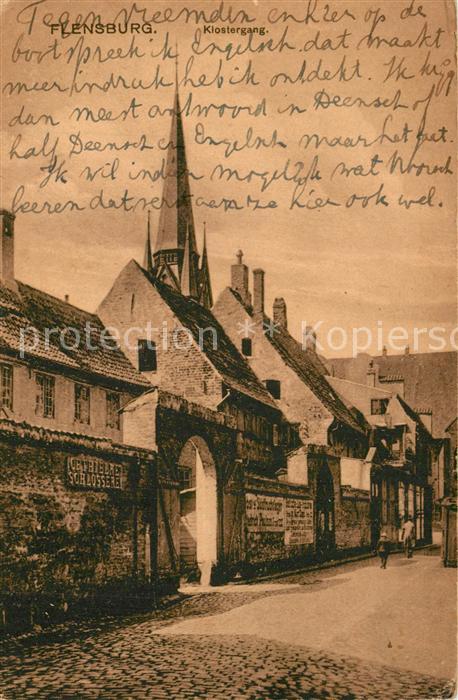 Tegen vreemden en hier op de
FLENSBURG. Klostergang.
boot spreek ik Engelsch, dat maakt
meer indruk heb ik ontdekt. Ik krijg
dan meest antwoord in Deensch of
half Deensch en Engelsch maar het gaat.
Ik wil indien mogelijk wat Noorsch
leeren dat verstaan ze hier ook wel.
Protection - Kopierschutz
SCHLOSSEREI